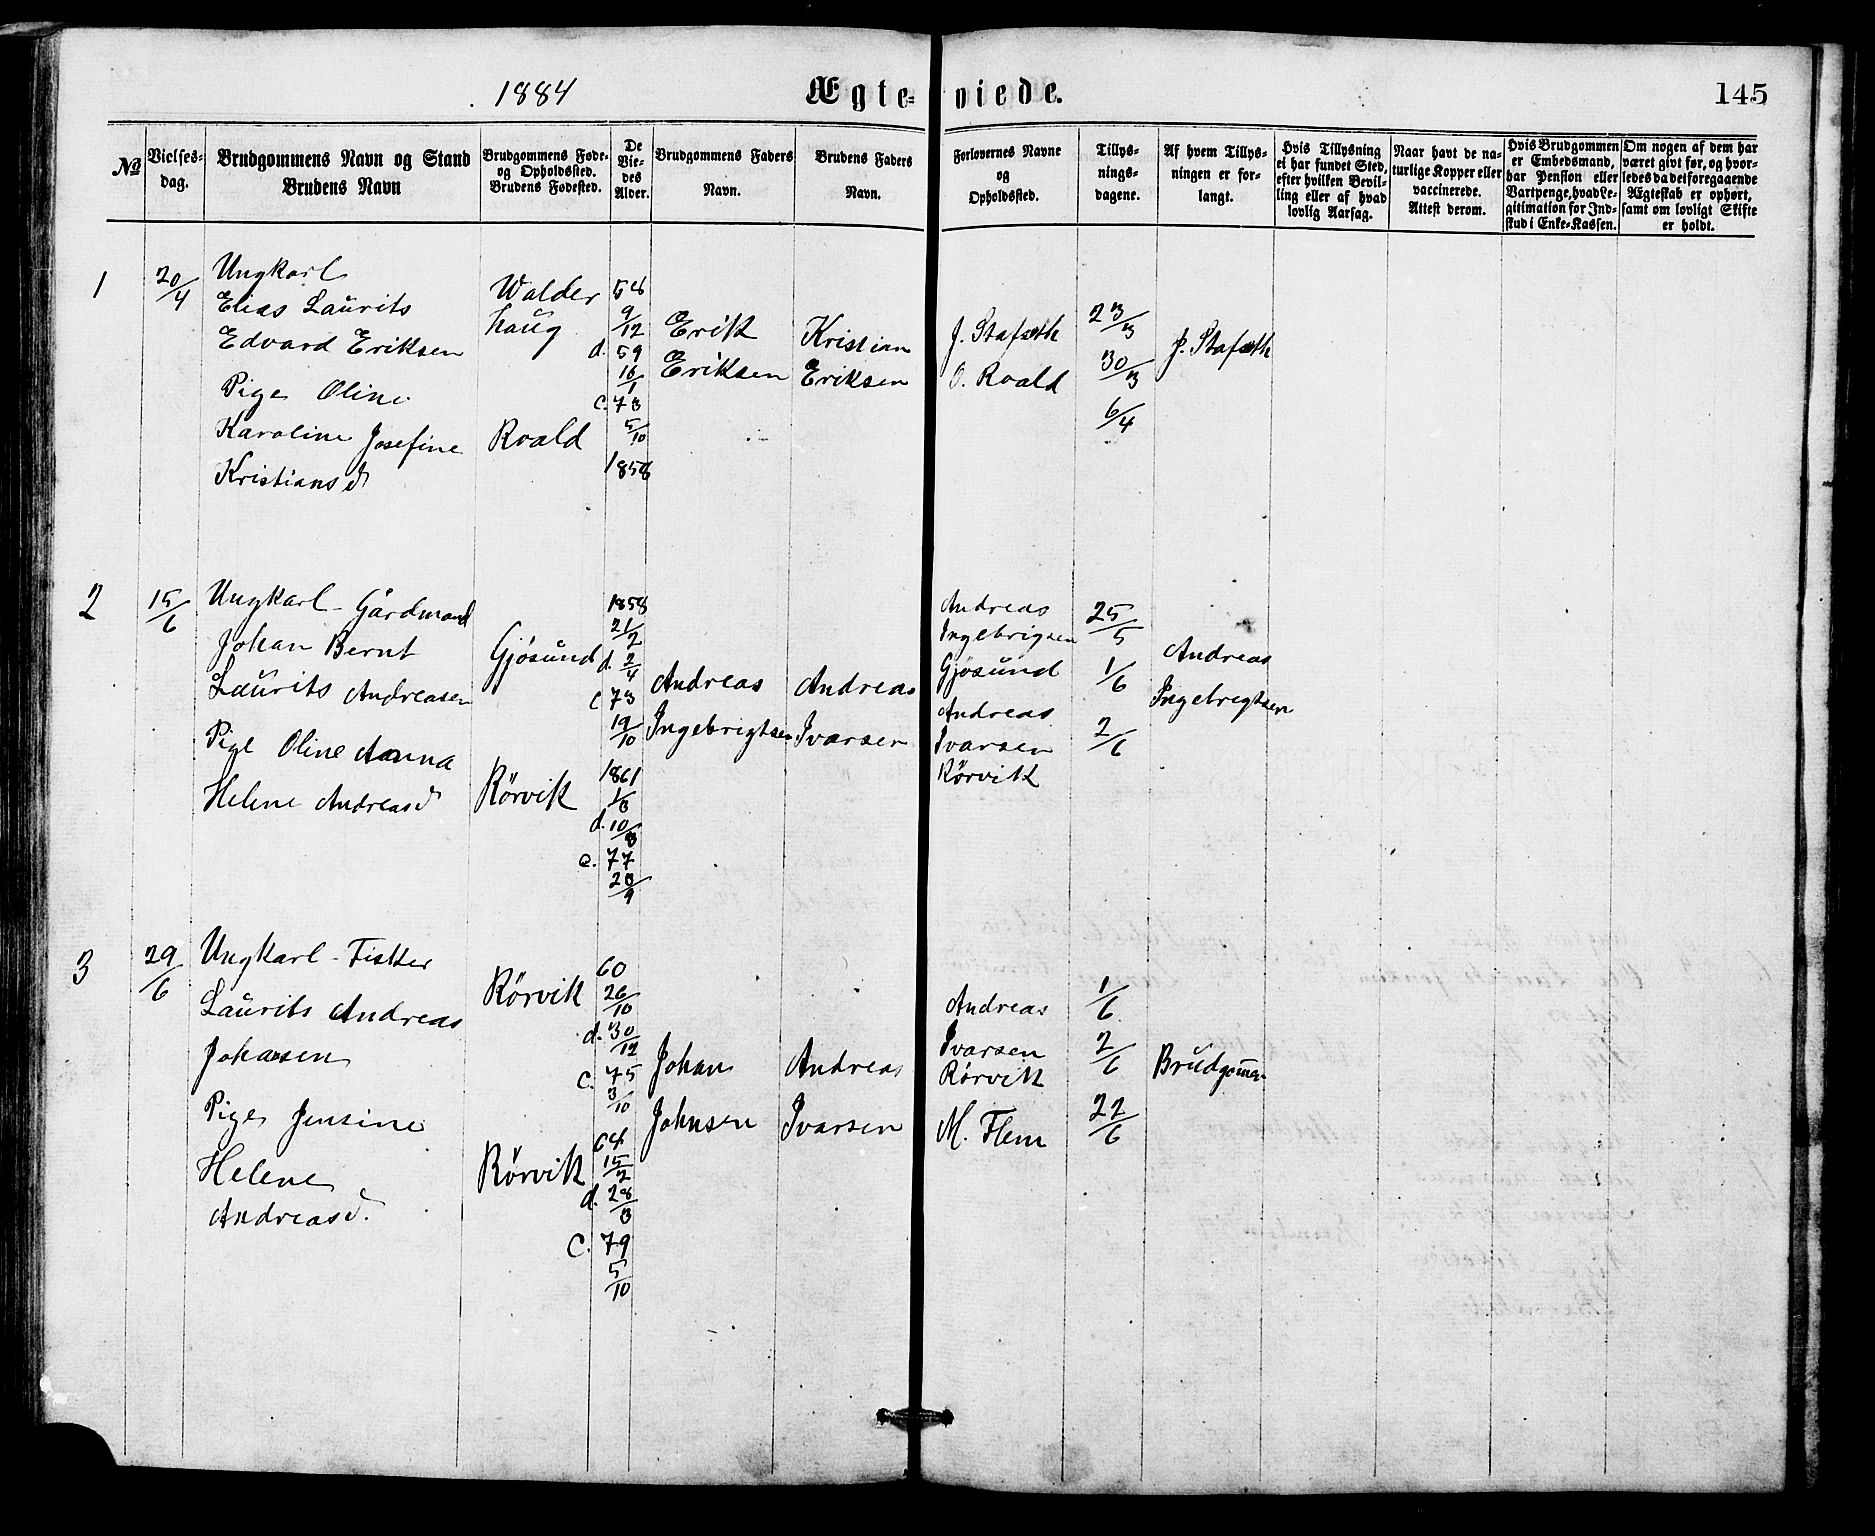 1884 Ægte- viede. 145
No
Vielses-
dag.
Brudgommens Navn og Stand
Brudens Navn
Brudgommens Føde-
og Opholdssted.
Brudens Fødested.
De
Vie-
des
Alder.
Brudgommens Faders
Navn.
Brudens Faders
Navn.
Forlovernes Navne
og
Opholdssted.
Tillys-
nings-
dagene.
Af hvem Tillys-
ningen er for-
langt.
Hvis Tillysning
ei har fundet Sted,
efter hvilken Bevil-
ling eller af hvad
lovlig Aarsag.
Naar havt de na-
turlige Kopper eller
vaccinerede.
Attest derom.
Hvis Brudgommen
er Embedsmand,
har Pension eller
Vartpenge, hvad Le-
gitimation for Ind-
skud i Enke-Kassen.
Om nogen af dem har
været givt før, og hvor-
ledes da det foregaaende
Ægteskab er ophørt,
samt om lovligt Skifte
er holdt.
1
20/4
Ungkarl
Elias Laurits
Edvard Eriksen
Pige Oline
Karoline Josefine
Kristiansd
Walder
haug
Roald
54
9/12
d. 59
16/1
c. 73
5/10
1858
Erik
Eriksen
Kristian
Eriksen
J. Stafseth
O. Roald
23/3
30/3
6/4
J. Stafseth
2
15/6
Ungkarl - Gårdmand
Johan Bernt
Laurits Andreasen
Pige Oline Anna
Helene Andreasd
Gjøsund
Rørvik
1858
21/2
d. 2/4
c. 73
19/10
1861
1/8
d. 10/8
c. 77
28/9
Andreas
Ingebrigtsen
Andreas
Ivarsen
Andreas
Ingebrigsen
Gjøsund
Andreas
Ivarsen
Rørvik
25/5
1/6
2/6
Andreas
Ingebrigtsen
3
29/6
Ungkarl - Fisker
Laurits Andreas
Johansen
Pige Jensine
Helene
Andreasd.
Rørvik
Rørvik
60
26/10
d. 30/12
c. 75
3/10
64
15/2
d. 28/3
c. 79
5/10
Johan
Johnsen
Andreas
Ivarsen
Andreas
Ivarsen
Rørvik
M. Flem
1/6
2/6
22/6
Brudgom̄en